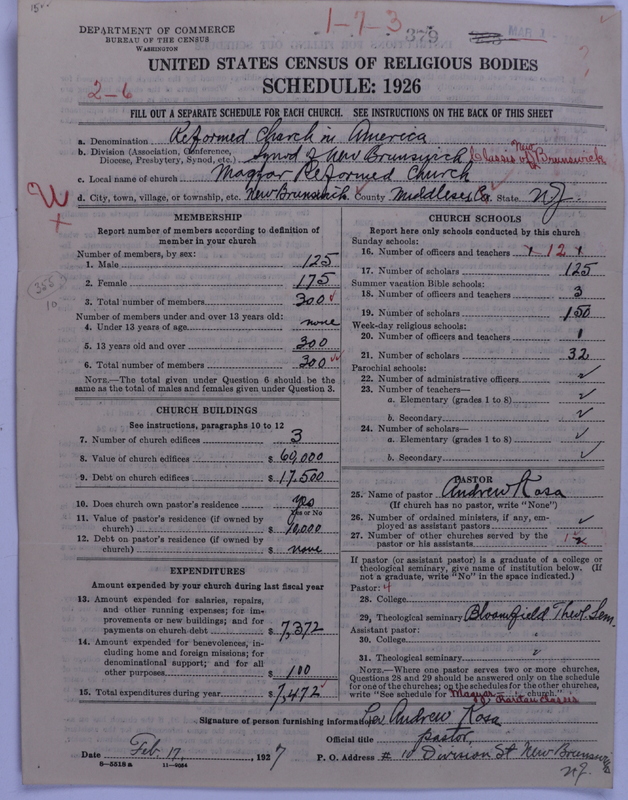 1-7-3
379
DEPARTMENT OF COMMERCE
BUREAU OF THE CENSUS
WASHINGTON
UNITED STATES CENSUS OF RELIGIOUS BODIES
SCHEDULE: 1926
2-6
FILL OUT A SEPARATE SCHEDULE FOR EACH CHURCH. SEE INSTRUCTIONS ON THE BACK OF THIS SHEET
a. Denomination Reformed Church in America
b. Division (Association, Conference, Diocese, Presbytery, Synod, etc.) Synod of New Brunswick Classis of New Brunswick
c. Local name of church Magyar Reformed Church
d. City, town, village, or township, etc. New Brunswick County Middlesex Co. State NJ
MEMBERSHIP
Report number of members according to definition of
member in your church
Number of members, by sex:
1. Male 125
2. Female 175
3. Total number of members 300
Number of members under and over 13 years old:
4. Under 13 years of age none
5. 13 years old and over 300
6. Total number of members 300
NOTE.—The total given under Question 6 should be the
same as the total of males and females given under Question 3.
CHURCH BUILDINGS
See instructions, paragraphs 10 to 12
7. Number of church edifices 3
8. Value of church edifices $ 60,000
9. Debt on church edifices $ 17,500
10. Does church own pastor's residence yes
Yes or No
11. Value of pastor's residence (if owned by
church) $ 10,000
12. Debt on pastor's residence (if owned by
church) $ none
EXPENDITURES
Amount expended by your church during last fiscal year
13. Amount expended for salaries, repairs,
and other running expenses; for im-
provements or new buildings; and for
payments on church debt $ 7,372
14. Amount expended for benevolences, in-
cluding home and foreign missions; for
denominational support; and for all
other purposes $ 100
15. Total expenditures during year $ 7,472
CHURCH SCHOOLS
Report here only schools conducted by this church
Sunday schools:
16. Number of officers and teachers 12
17. Number of scholars 125
Summer vacation Bible schools:
18. Number of officers and teachers 3
19. Number of scholars 150
Week-day religious schools:
20. Number of officers and teachers 1
21. Number of scholars 32
Parochial schools:
22. Number of administrative officers
23. Number of teachers—
a. Elementary (grades 1 to 8)
b. Secondary
24. Number of scholars—
a. Elementary (grades 1 to 8)
b. Secondary
PASTOR
25. Name of pastor Andrew Kosa
(If church has no pastor, write "None")
26. Number of ordained ministers, if any, em-
ployed as assistant pastors
27. Number of other churches served by the
pastor or his assistants 1
If pastor (or assistant pastor) is a graduate of a college or
theological seminary, give name of institution below. (If
not a graduate, write "No" in the space indicated.)
Pastor: 4
28. College
29. Theological seminary Bloomfield Theol. Sem.
Assistant pastor:
30. College
31. Theological seminary
NOTE.—Where one pastor serves two or more churches,
Questions 28 and 29 should be answered only on the schedule
for one of the churches; on the schedules for the other churches,
write "See schedule for Magyar church."
Signature of person furnishing information Andrew Kosa
Official title pastor
Date Feb. 17, 1927 P. O. Address # 10 Division St New Brunswick
NJ.
8-5518a 11-9054